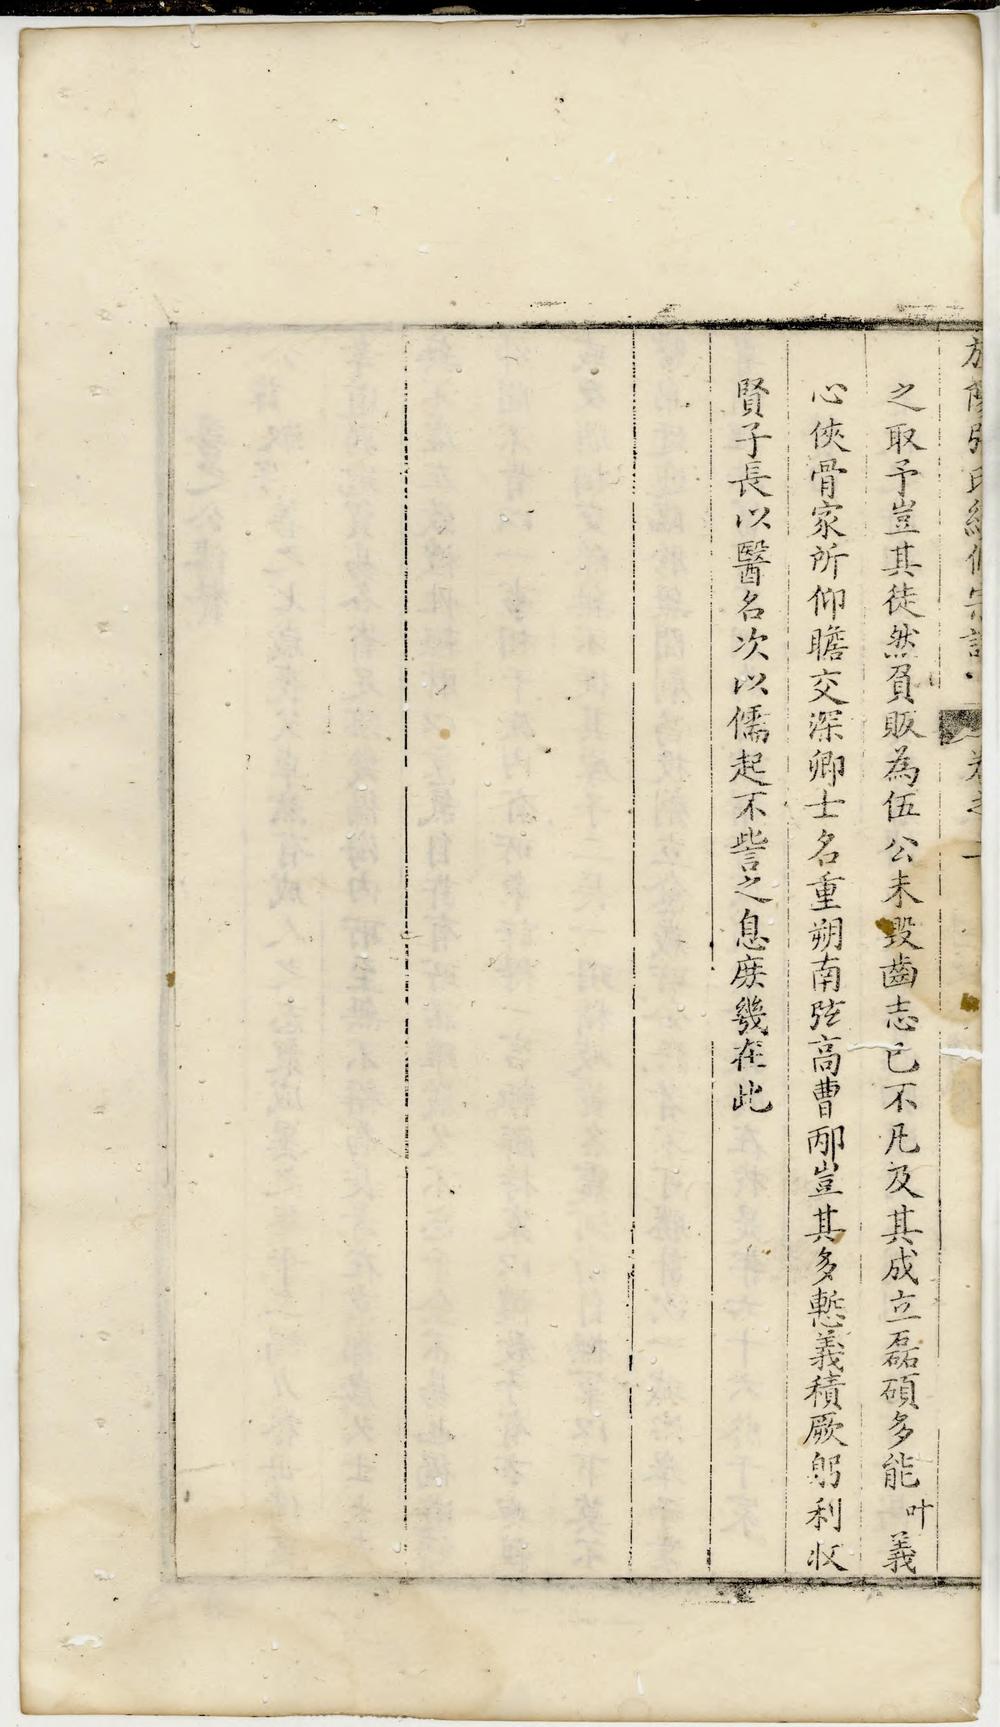 張氏續修宗譜 卷之一
之取予豈其徒然負販為伍公未毀齒志已不凡及其成立磊碩多能叶義
心俠骨家所仰瞻交深卿士名重朔南弦高曹邴豈其多慙義積厥躬利收
賢子長以醫名次以儒起不訾之息庶幾在此